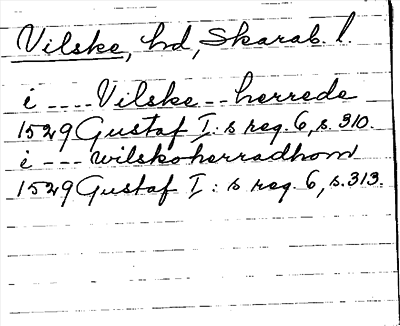 Vilske, hd, Skarab. l.
i ---- Vilske -- herrede
1529 Gustaf I: s reg. 6, s. 310.
i --- wilskoherradhom
1529 Gustaf I: s reg. 6, s. 313.